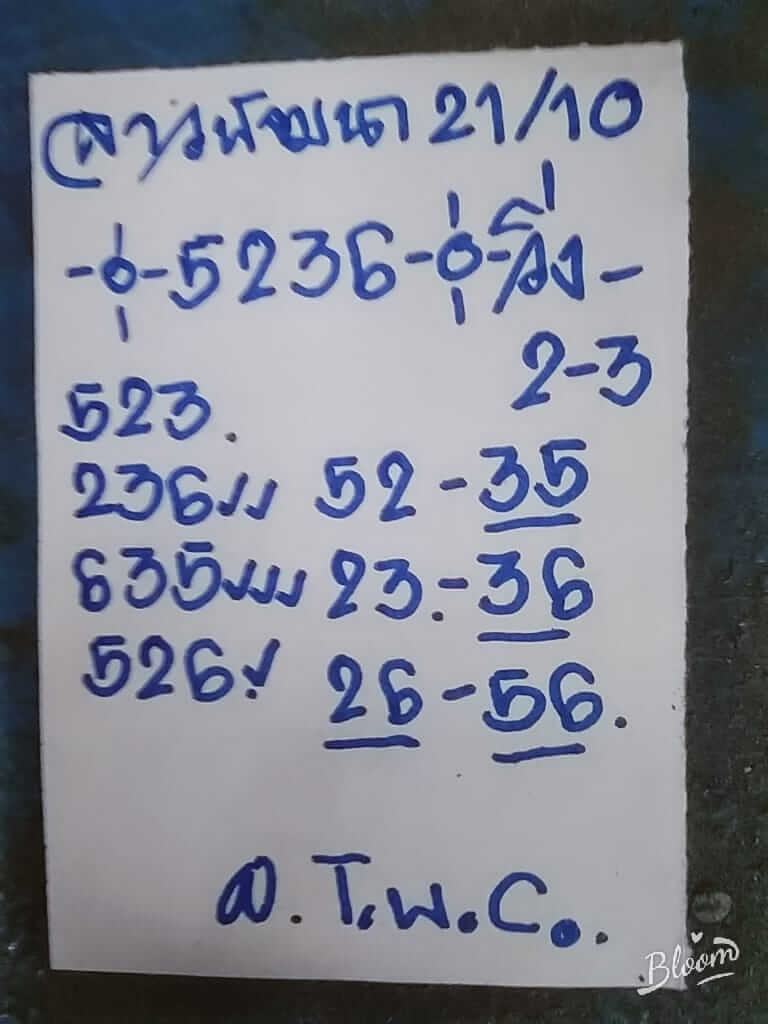 ลาวพัฒนา 21/10
-0-5236-0-วิ่ง-
2-3
523.
236 52-35
635 23.-36
526 26-56.
ล.T.พ.C..
Bloom